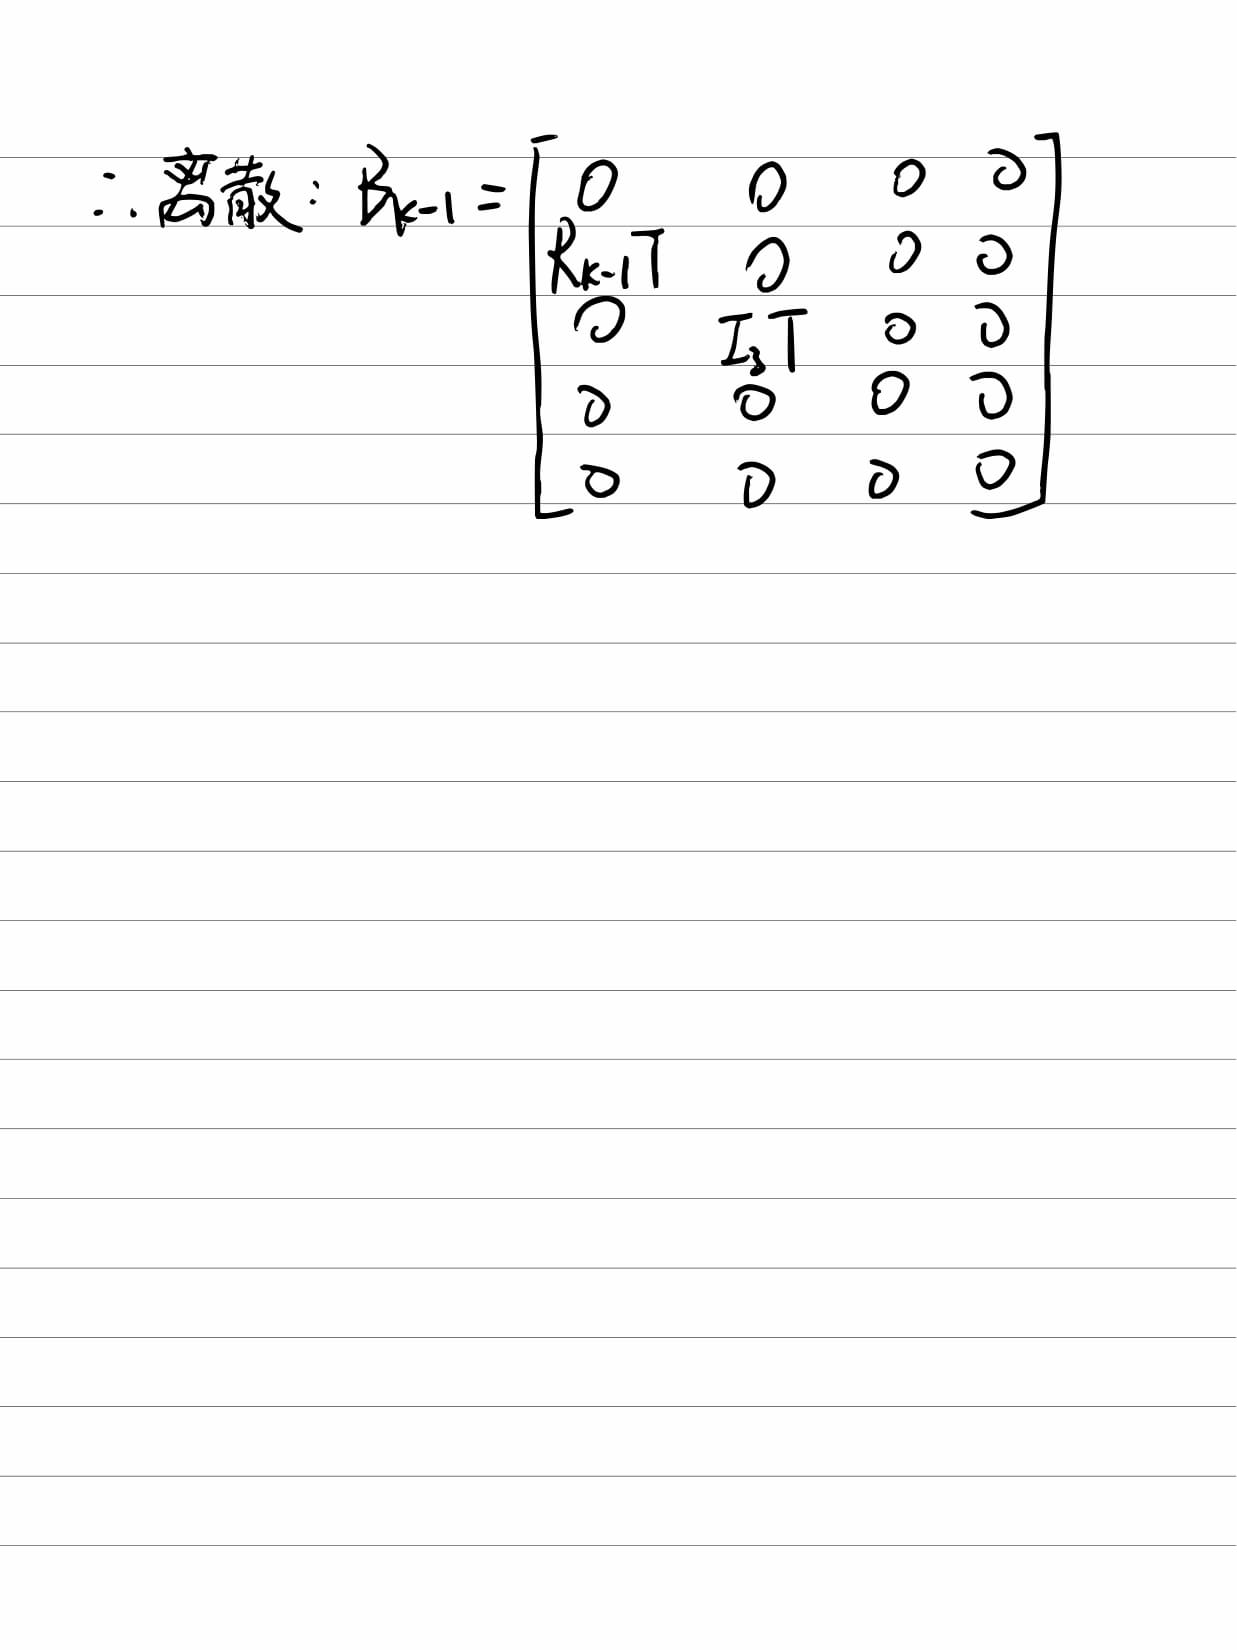 ∴离散: B_{k-1} = [ 0 0 0 0
R_{k-1}T 0 0 0
0 I_3T 0 0
0 0 0 0
0 0 0 0 ]